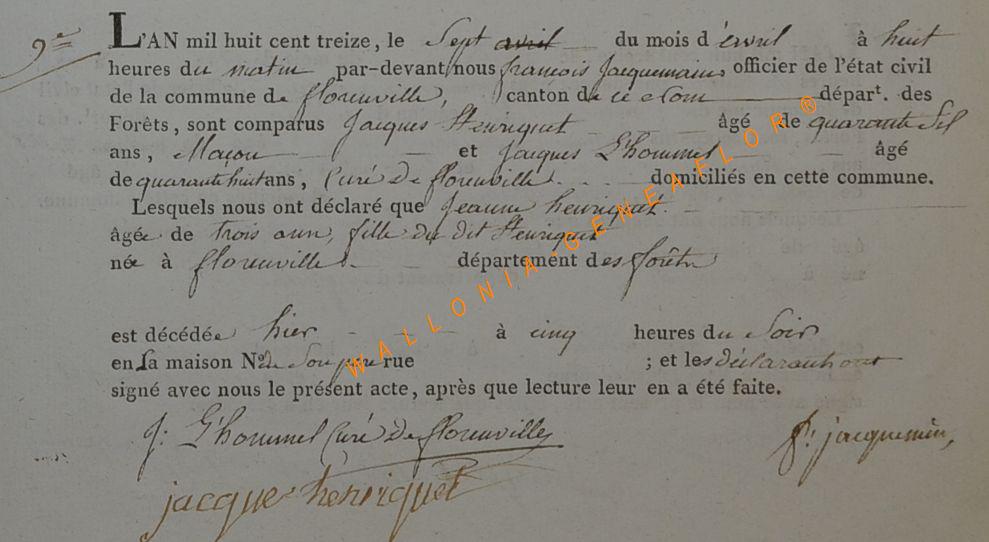 9e L'AN mil huit cent treize, le Sept avril du mois d'avril à huit
heures du matin par-devant nous françois Jacquemain officier de l'état civil
de la commune de florenville, canton de ce nom départ. des
Forêts, sont comparus Jacques Henriquet âgé de quarante
ans, Maçon et Jacques L'hommel âgé
de quarante huit ans, Curé De florenville. domiciliés en cette commune.
Lesquels nous ont déclaré que Jeanne henriquet
âgée de trois ans, fille du dit Henriquet
née à florenville département des forêts
est décédée hier à cinq heures du Soir
en sa maison No de Son père rue ; et les déclarants ont
signé avec nous le présent acte, après que lecture leur en a été faite.
J: L'hommel Curé De florenville
f: jacquemin,
jacque henriquet
WALLONIA-GENEAFLOR®